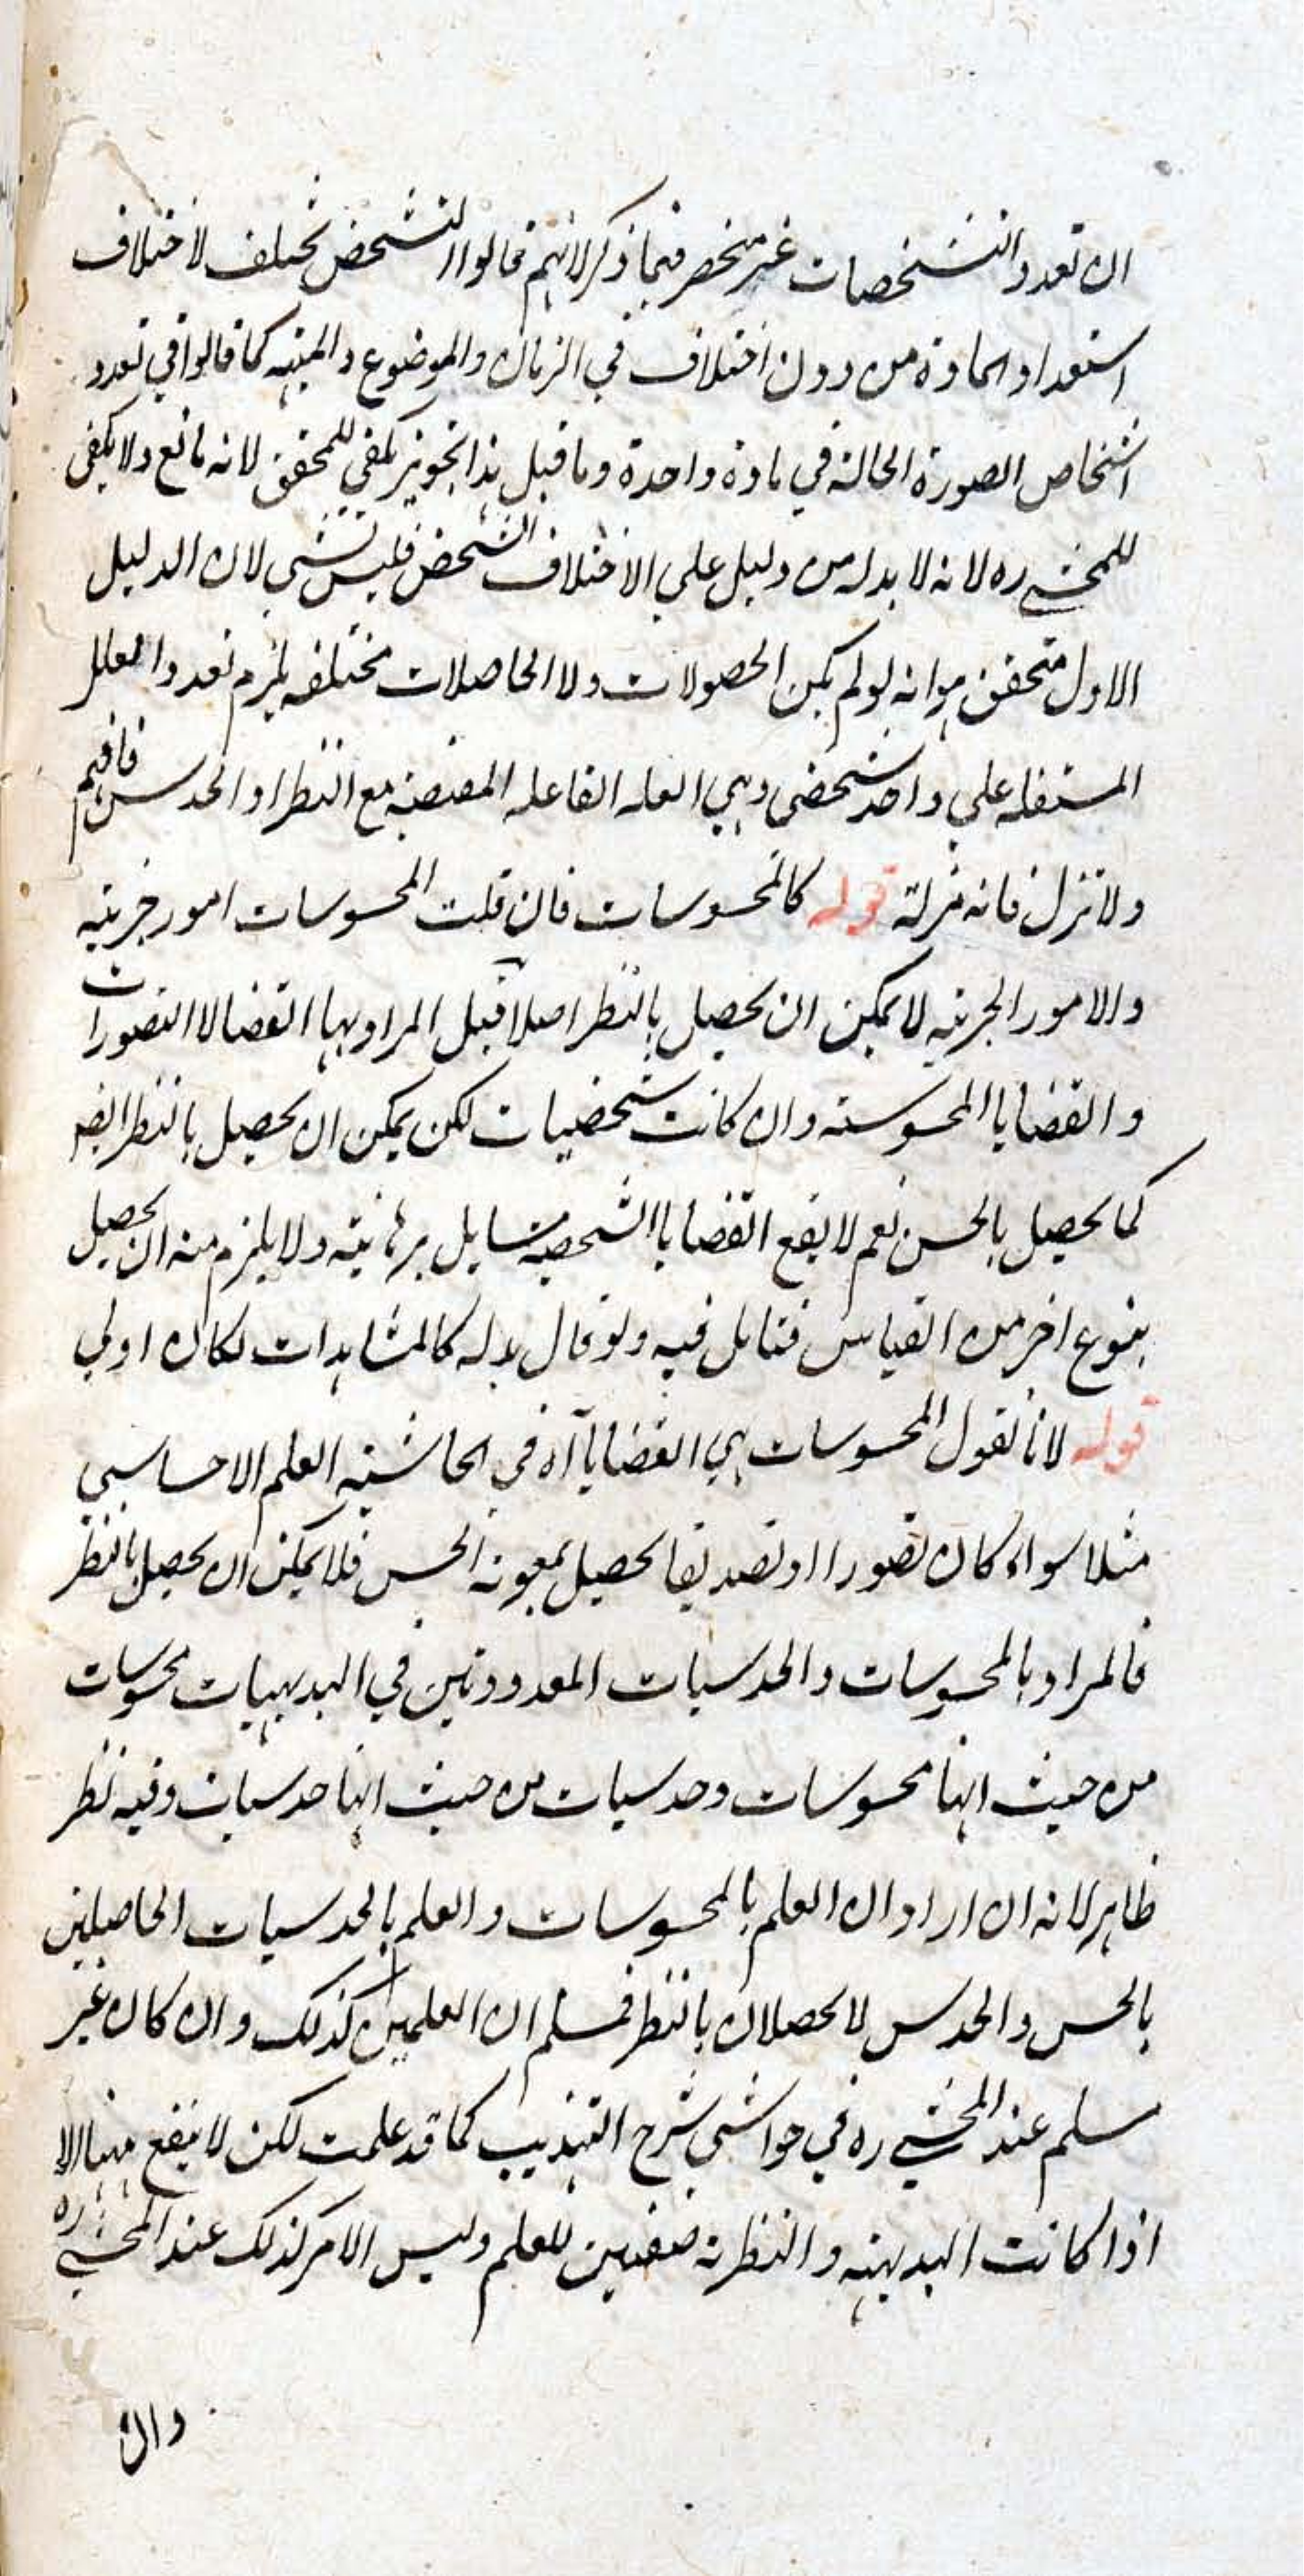 ان تعدد التشخصات غير منحصر فيما ذكر لانهم قالوا التشخص تختلف لاختلاف
استعداد المادة من دون اختلاف في الزمان والموضوع والميته كما قالوا في تعدد
اشخاص الصورة الحالة في مادة واحدة وما قيل هذا تجويز يكفي للمحقق لانه مانع ولا يكفي
للمحشي ره لانه لا بد له من دليل على الاختلاف التشخص فليس بشي لان الدليل
الاول متحقق هو انه لو لم يكن الحصولات ولا الحاصلات مختلفه يلزم تعدد العلل
المستقله علي واحد شخصي وهي العله الفاعله المقتضيه مع النظر او الحدس فافهم
ولا تزل فانه مزلة قوله كالمحسوسات فان قلت المحسوسات امور جزئيه
والامور الجزئيه لا يمكن ان يحصل بالنظر اصلا قيل المراد بها القضايا لا التصورات
والقضايا المحسوسته وان كانت شخصيات لكن يمكن ان يحصل بالنظر ايضه
كما يحصل بالحس نعم لا يقع القضايا الشخصيه مسايل برهانيته ولا يلزم منه ان لا يحصل
بنوع اخر من القياس فتامل فيه ولو قال بدله كالمشاهدات لكان اولي
قوله لانا نقول المحسوسات هي القضايا آه في الحاشيته العلم الاحساسي
مثلا سواء كان تصورا او تصديقا يحصل بمعونة الحس فلا يمكن ان يحصل بالنظر
فالمراد بالمحسوسات والحدسيات المعدودتين في البديهيات محسوسات
من حيث انها محسوسات وحدسيات من حيث انها حدسيات وفيه نظر
ظاهر لانه ان اراد ان العلم بالمحسوسات والعلم بالحدسيات الحاصلين
بالحس والحدس لا يحصلان بالنظر فمسلم ان العلمين كذلك وان كان غير
مسلم عند المحشي ره في حواشي شرح التهذيب كما قد علمت لكن لا ينفع ههنا الا
اذا كانت البديهيته والنظرية صفتين للعلم وليس الامر كذلك عند المحشي ره
وان